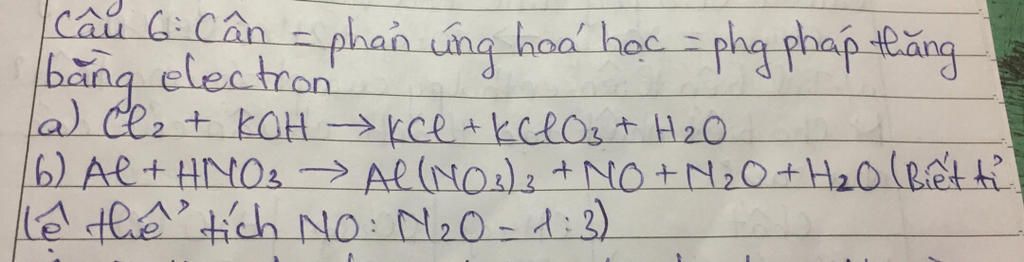 Câu 6: Cân = phản ứng hoá học = phg pháp thăng
bằng electron
a) Cl2 + KOH → KCl + KClO3 + H2O
b) Al + HNO3 → Al(NO3)3 + NO + N2O + H2O (Biết tỉ
lệ thể tích NO : N2O = 1 : 3)